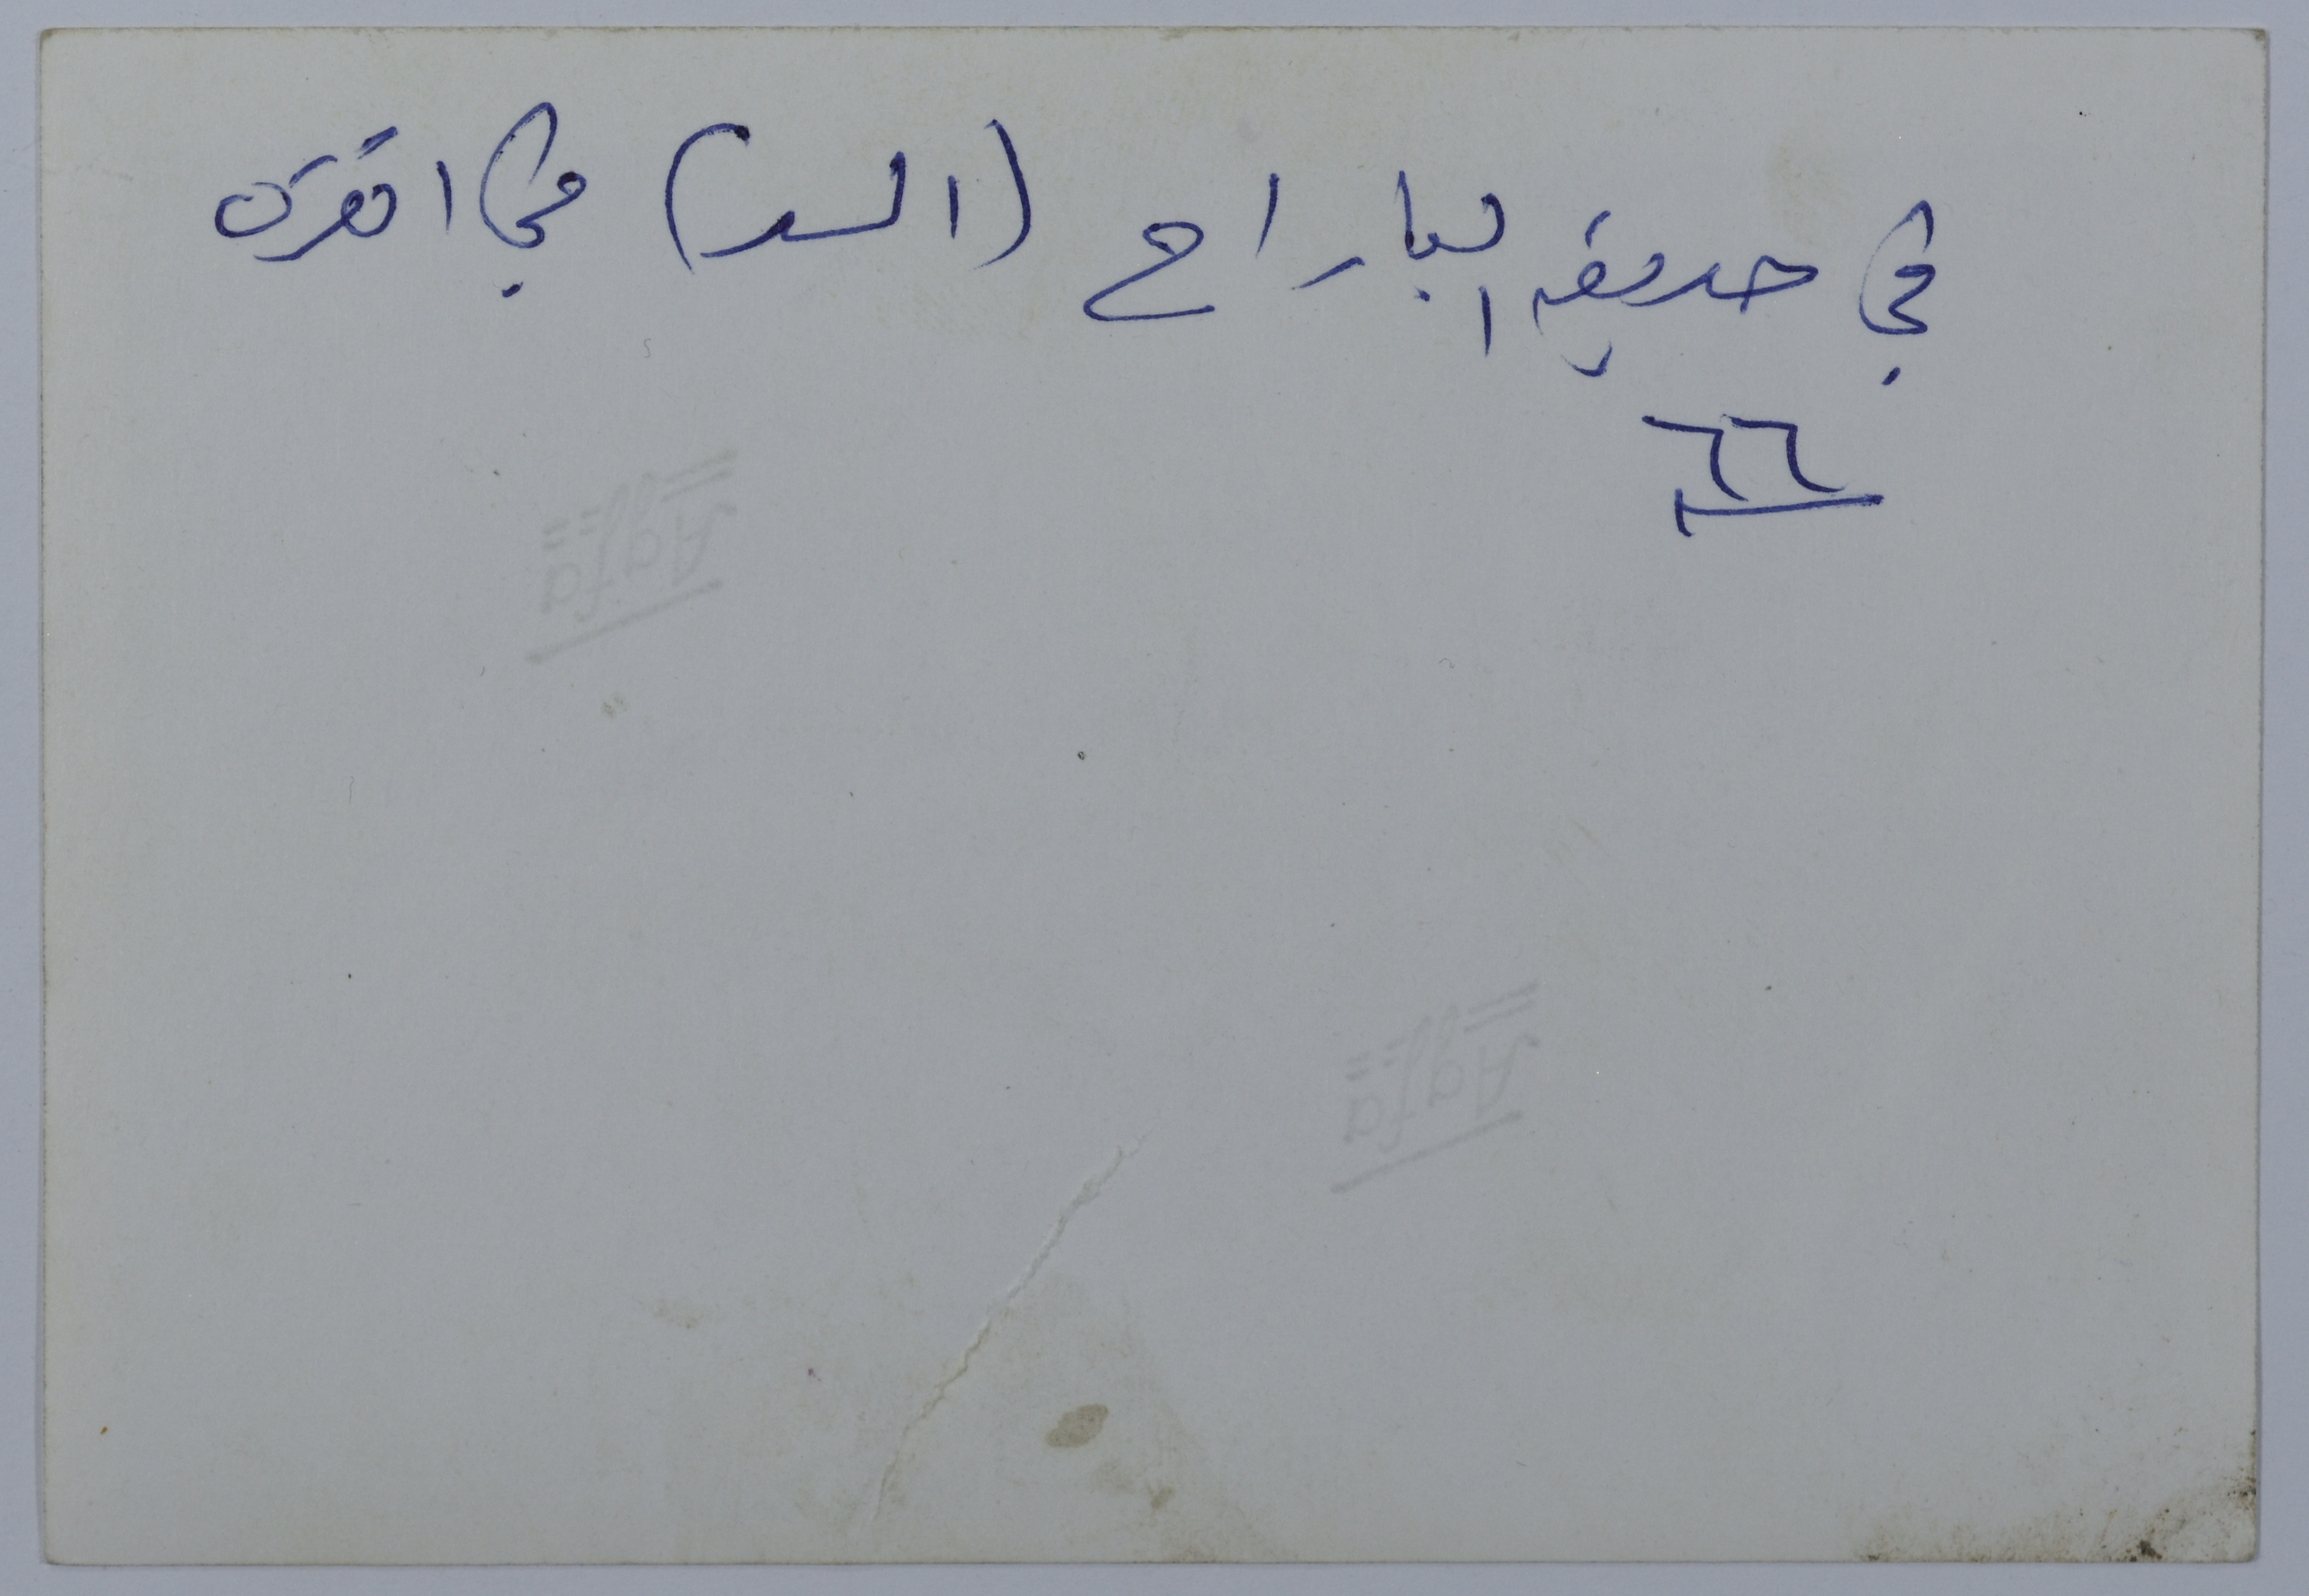 في حديقه الباراج (السد) في انقره
٦٦
Agfa
Agfa